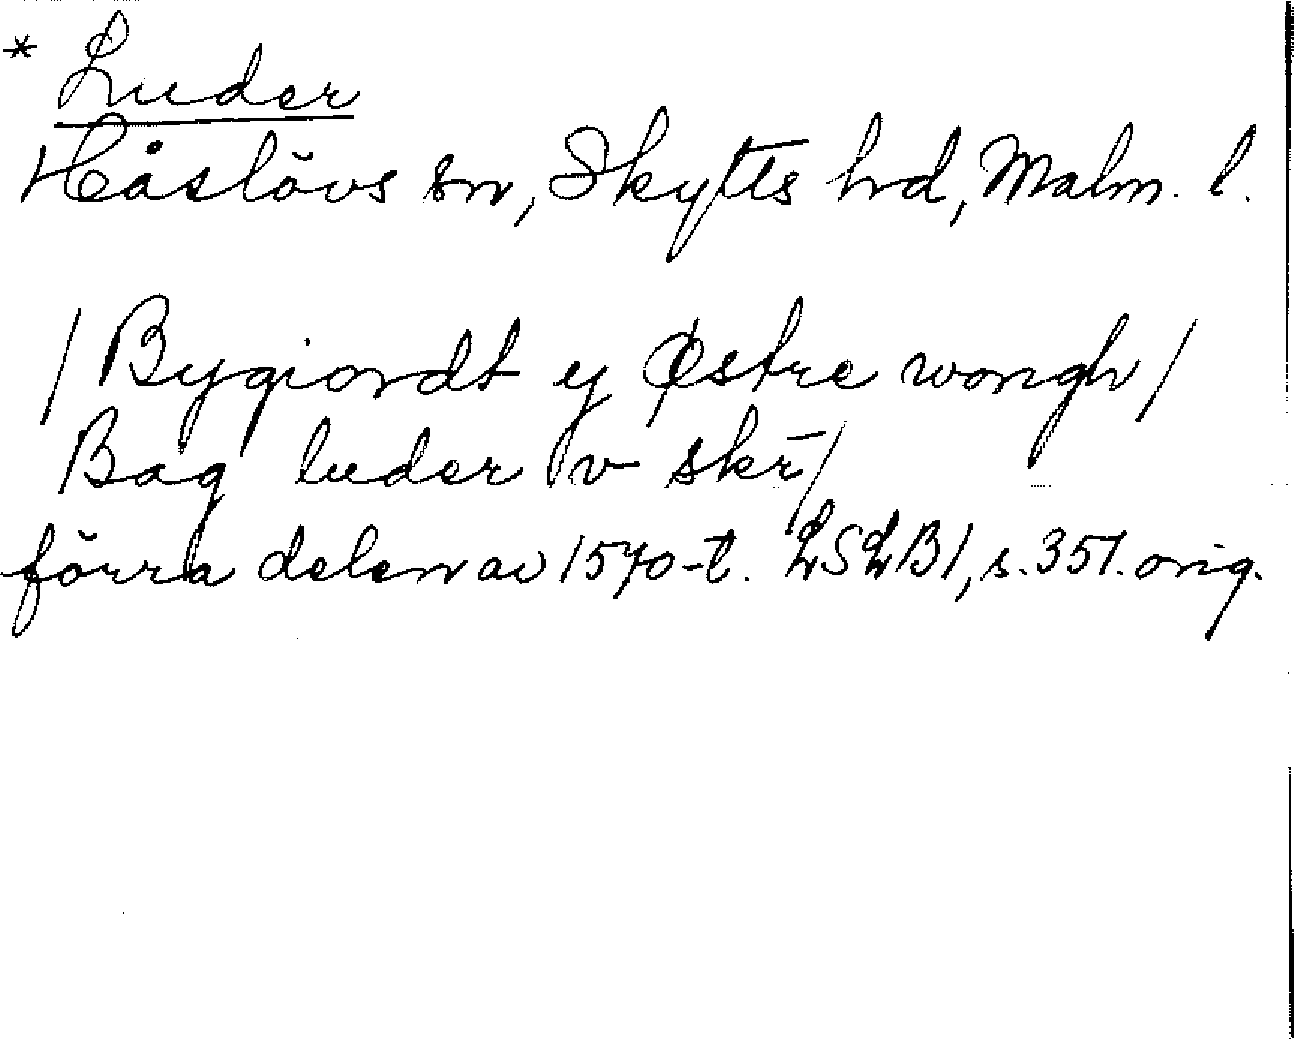 * Luder
Håslövs sn, Skytts hrd, Malm. l.
/ Bygiordt y Østre wongh /
Bag luder v skr̄ /
förra delen av 1570-t. LSLB1, s. 351. orig.